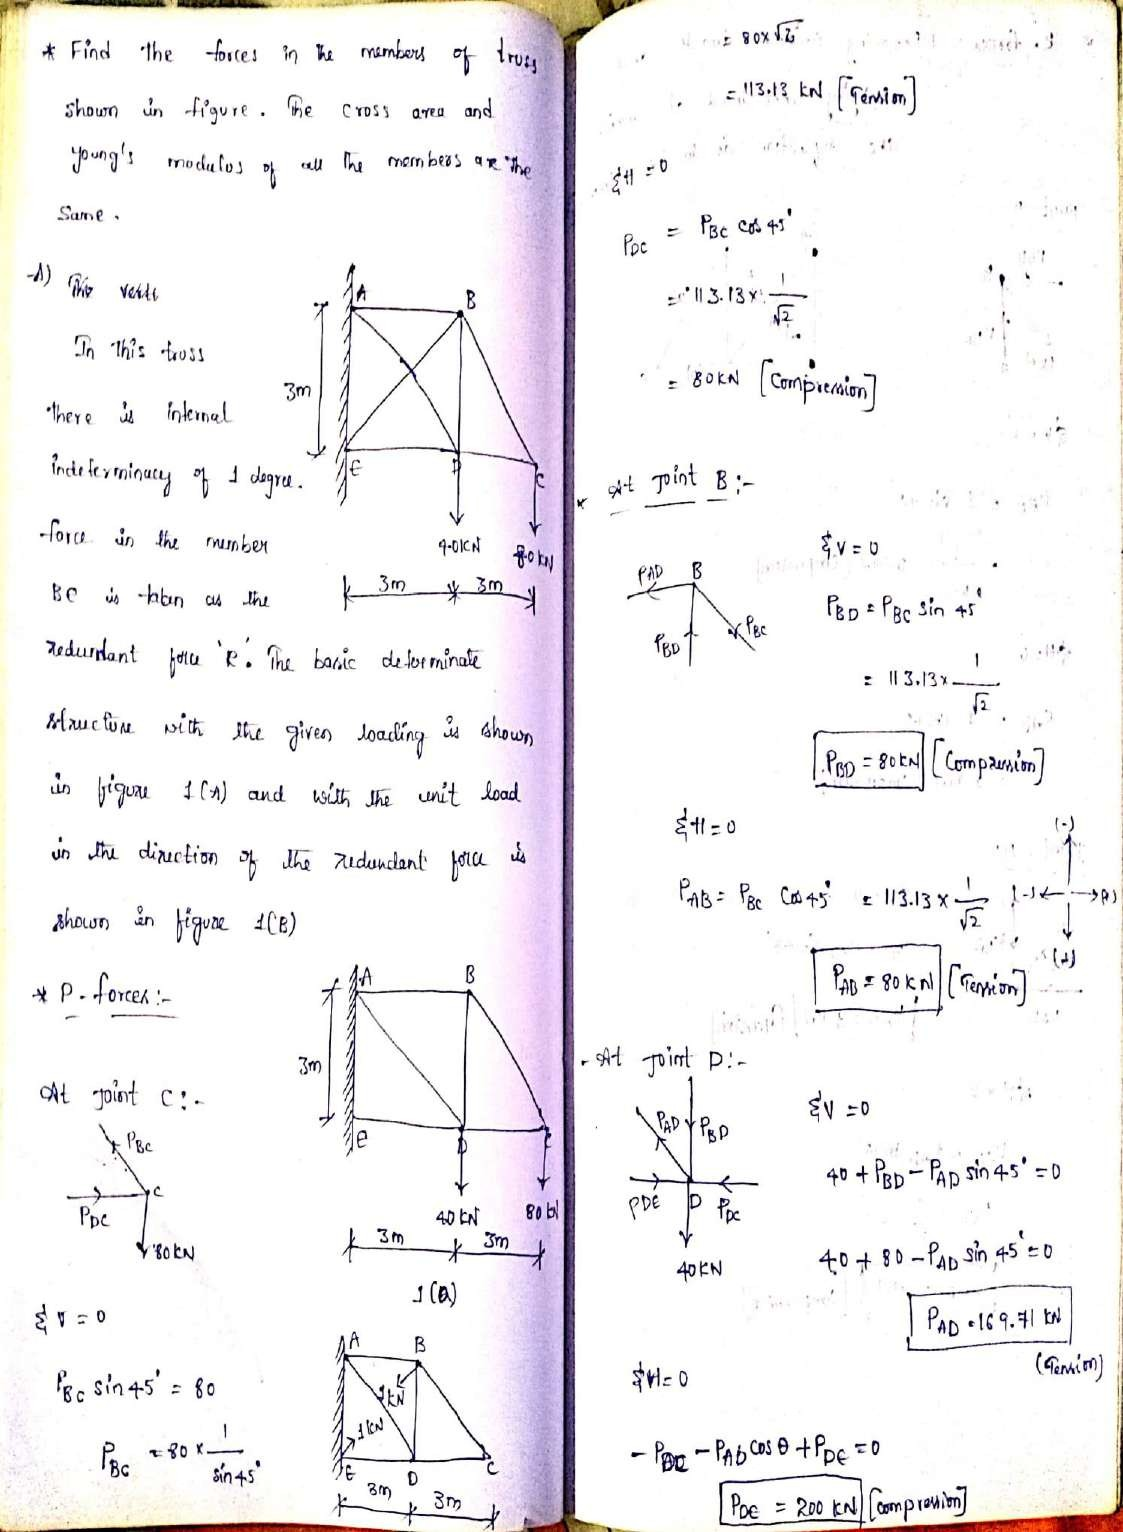 * Find the forces in the members of truss
shown in figure. The cross area and
young's modulus of all the members are the
same.
A) The
In this truss
there is internal
indeterminacy of 1 degree.
force in the member
BC is taken as the
redundant force 'R'. The basic determinate
structure with the given loading is shown
in figure 1(A) and with the unit load
in the direction of the redundant force is
shown in figure 1(B)
A
B
3m
E
D
C
40KN
80 kN
3m
3m
* P-forces:-
At joint C:-
PBC
C
PDC
80KN
ΣV=0
PBC sin 45° = 80
PBC = 80 x 1/sin 45°
A
B
3m
e
D
C
40 KN
80 kN
3m
3m
A
B
1KN
1KN
E
D
C
3m
3m
= 80x√2
= 113.13 kN [Tension]
ΣH=0
PDC = PBC cos 45°
= 113.13 x 1/√2
= 80KN [Compression]
* At joint B:-
ΣV=0
PAD
B
PBD
PBC
PBD = PBC sin 45°
= 113.13x 1/√2
PBD = 80KN [Compression]
ΣH=0
PAB = PBC Cos 45° = 113.13 x 1/√2
(-)
(-)
(+)
PAB = 80 KN [Tension]
At joint D:-
ΣV=0
PAD
PBD
PDE
D
PDC
40KN
40 + PBD - PAD sin 45° = 0
40 + 80 - PAD sin 45° = 0
PAD = 169.71 KN
(Tension)
ΣH=0
- PDC - PAD cos θ + PDE = 0
PDE = 200 KN [Compression]